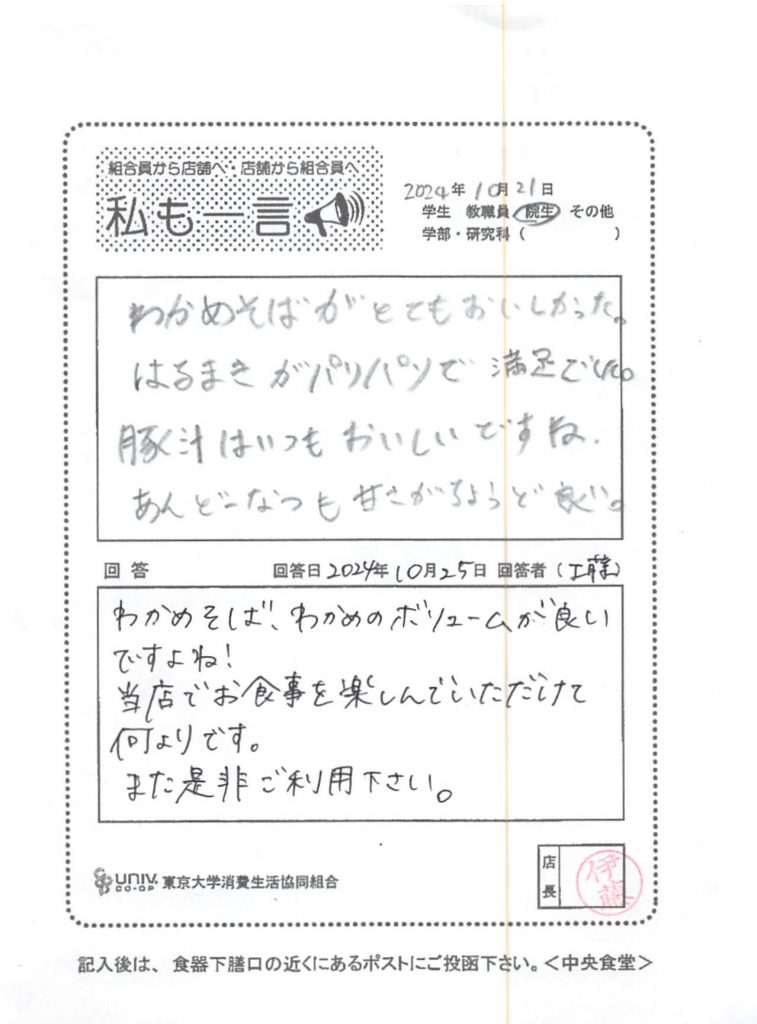 組合員から店舗へ・店舗から組合員へ
私も一言
2024年10月21日
学生 教職員 院生 その他
学部・研究科( )
わかめそばがとてもおいしかった。
はるまきがパリパリで満足でした。
豚汁はいつもおいしいですね.
あんどーなつも甘さがちょうど良い。
回答 回答日2024年10月25日 回答者(工藤)
わかめそば、わかめのボリュームが良い
ですよね!
当店でお食事を楽しんでいただけて
何よりです。
また是非ご利用下さい。
UNIV. CO-OP 東京大学消費生活協同組合
店長 伊藤
記入後は、食器下膳口の近くにあるポストにご投函下さい。<中央食堂>